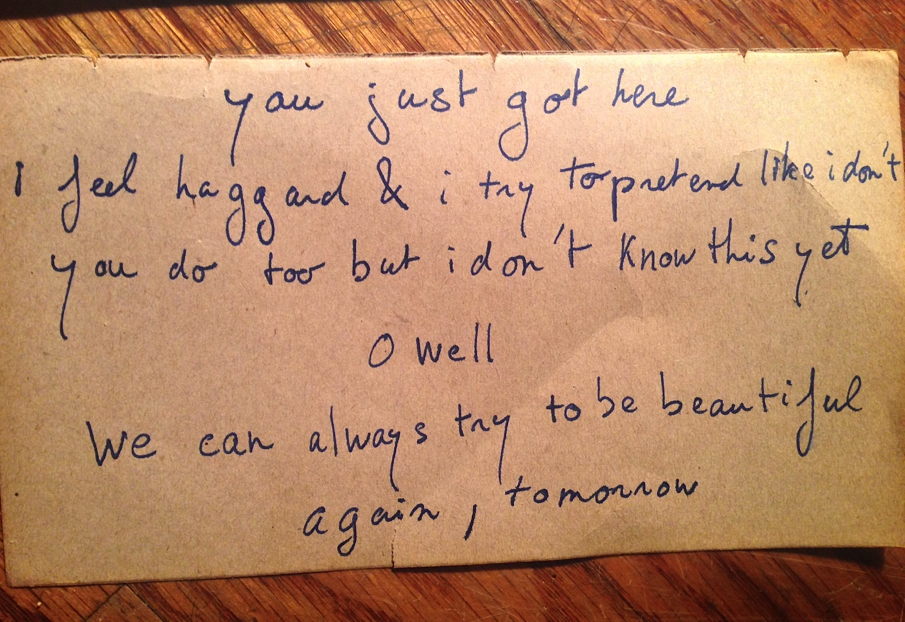 you just got here
i feel haggard & i try to pretend like i don't
you do too but i don't know this yet
O well
We can always try to be beautiful
again, tomorrow